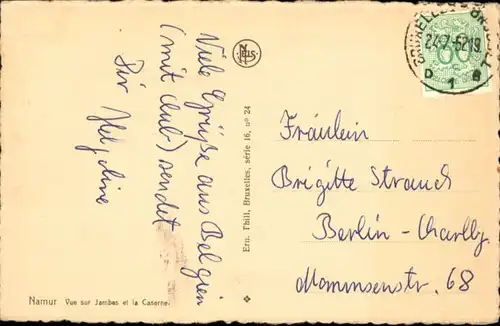 Viele Grüße aus Belgien
(mit Club) sendet
Dir
Namur Vue sur Jambes et la Caserne.
Ern. Thill, Bruxelles, série 16, nº 24
NELS
24-7-52 19
D 1 B
60
Fräulein
Brigitte Strauch
Berlin-Charlbg.
Mommsenstr. 68